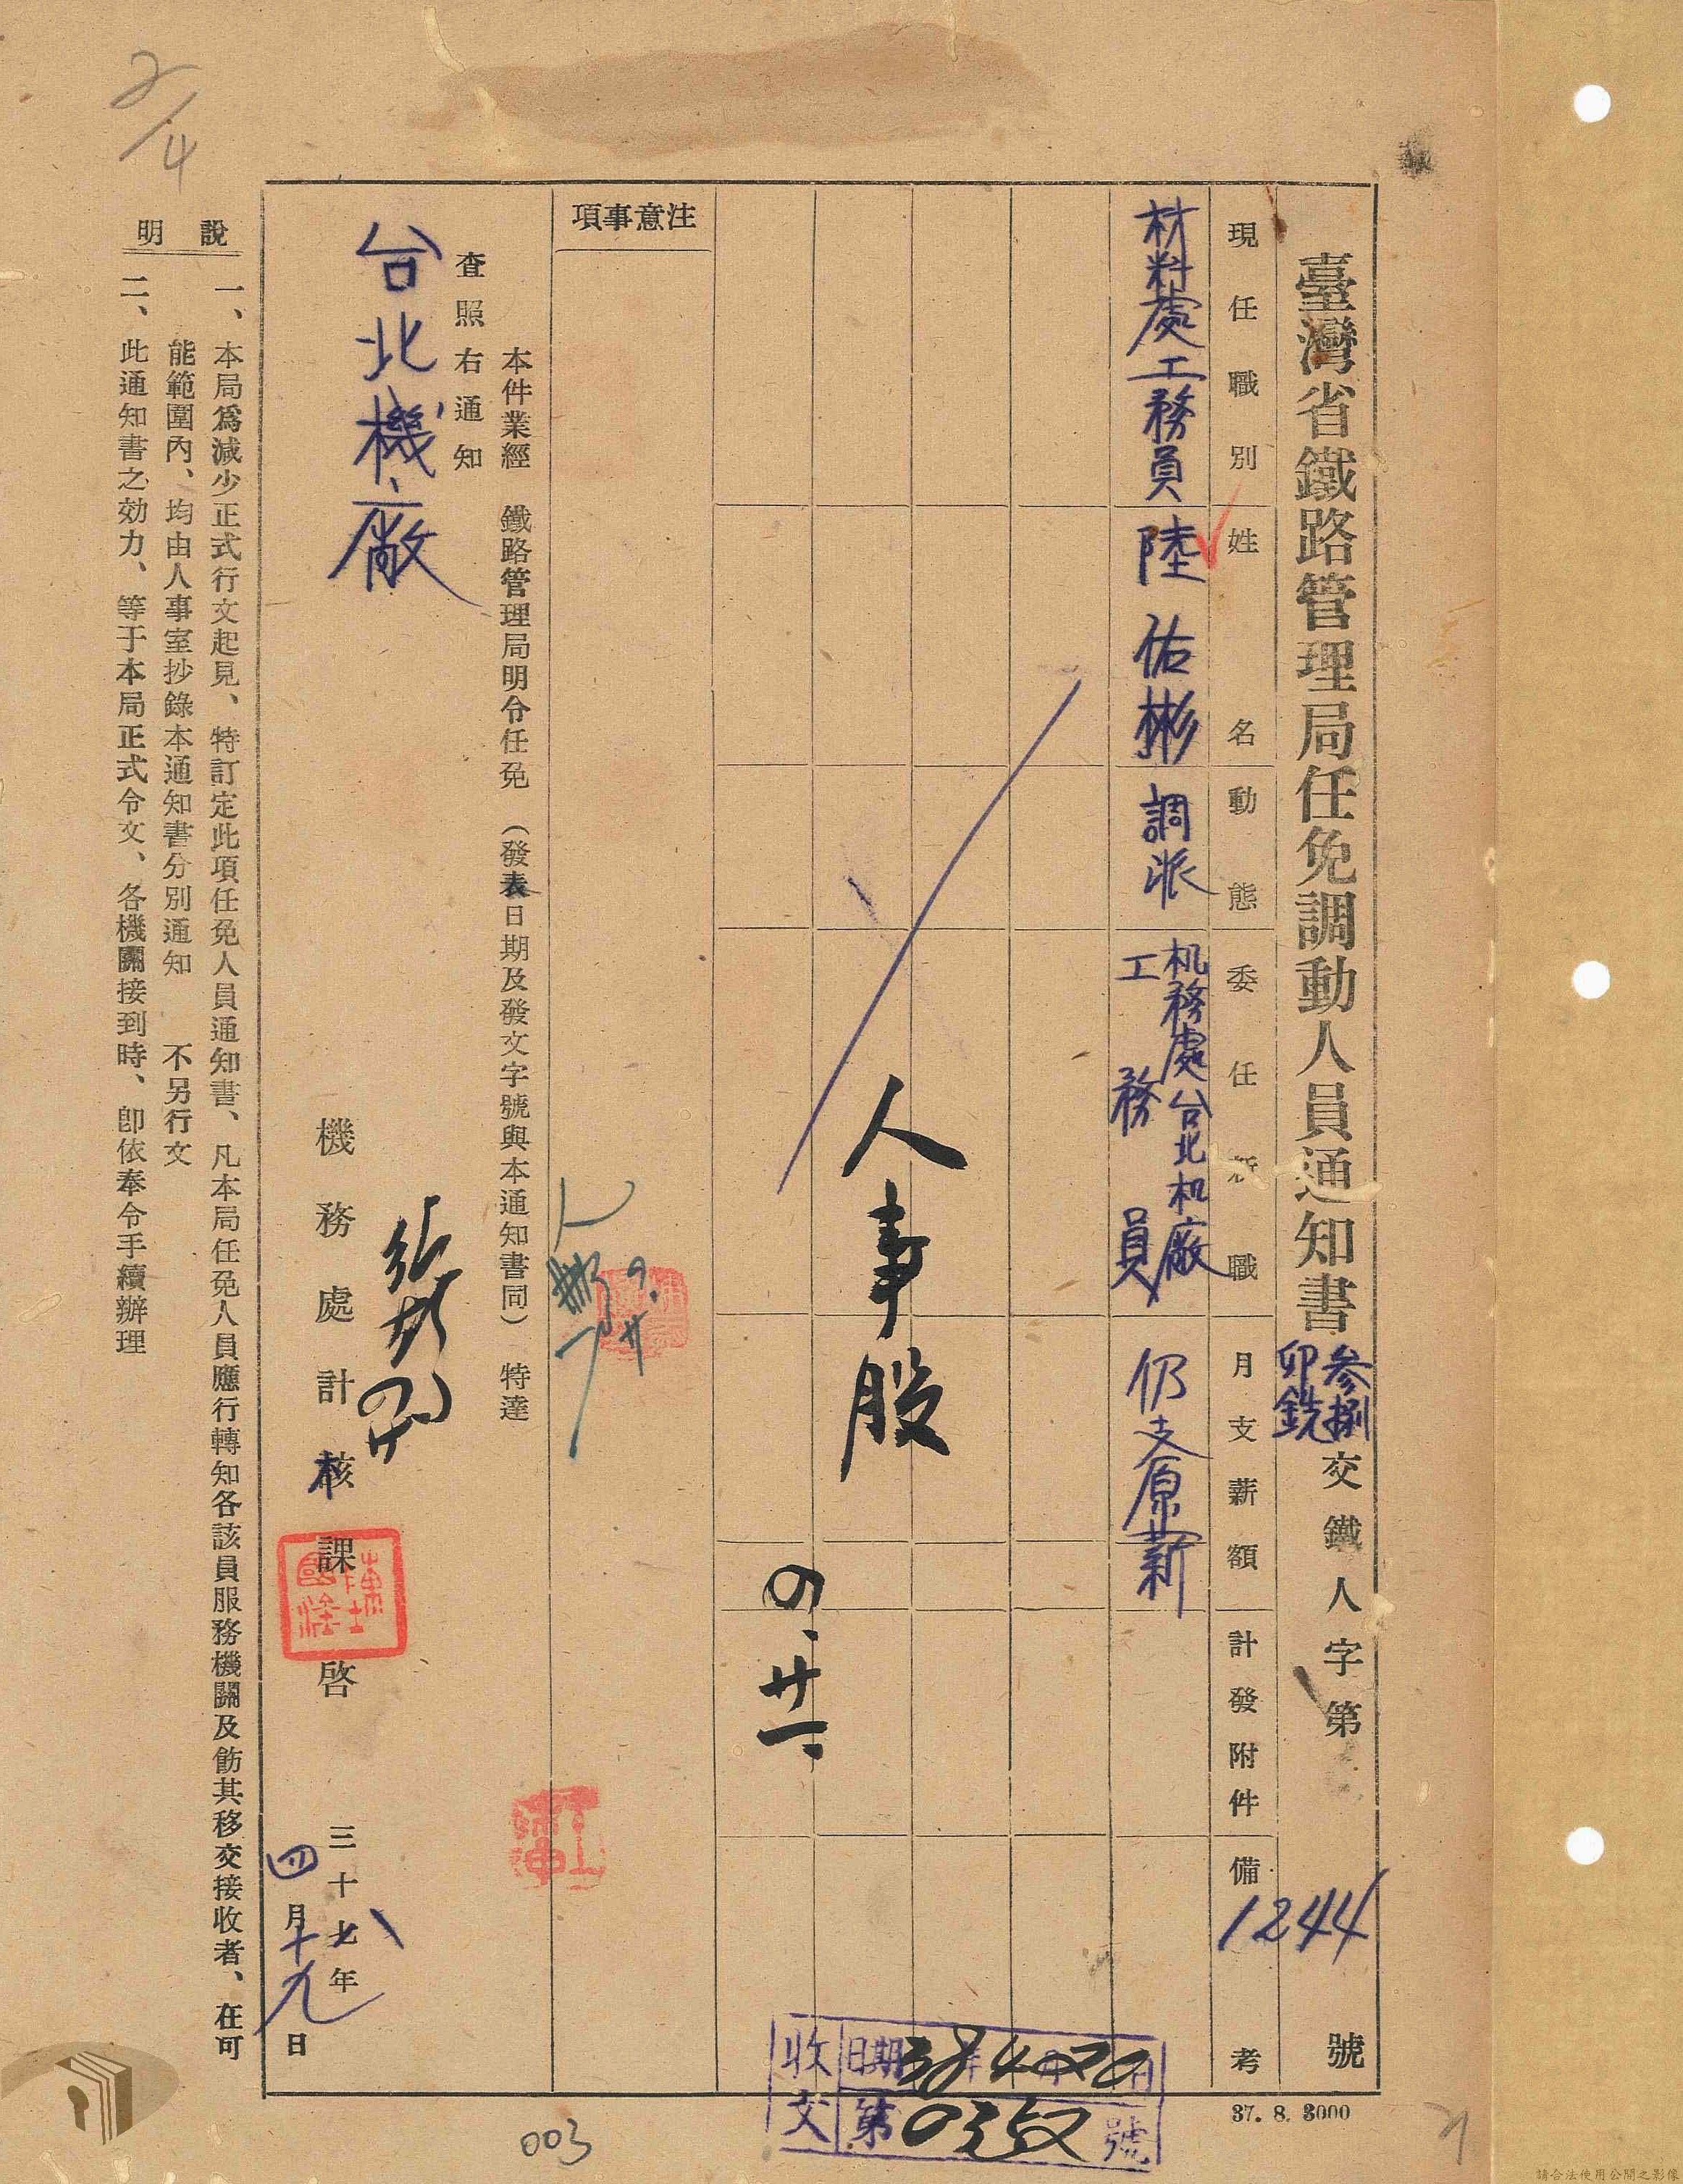 臺灣省鐵路管理局任免調動人員通知書
參捌
卯銑
交鐵人字第
1244
號
現任職別
姓名
動態
委任新職
月支薪額
計發附件
備考
材料處工務員
陸佑彬
調派
机務處台北机廠
工務員
仍支原薪
人事股
四、廿一、
注意事項
本件業經 鐵路管理局明令任免 (發表日期及發文字號與本通知書同) 特達
查照右通知
台北機廠
機務處計核課 啓
三十八年
四月十九日
說明
一、本局爲減少正式行文起見、特訂定此項任免人員通知書、凡本局任免人員應行轉知各該員服務機關及飭其移交接收者、在可
能範圍內、均由人事室抄錄本通知書分別通知 不另行文
二、此通知書之効力、等于本局正式令文、各機關接到時、卽依奉令手續辦理
收文
日期 38年4月20日
第 號
37. 8. 3000
003
2/4
請合法使用公開之影像